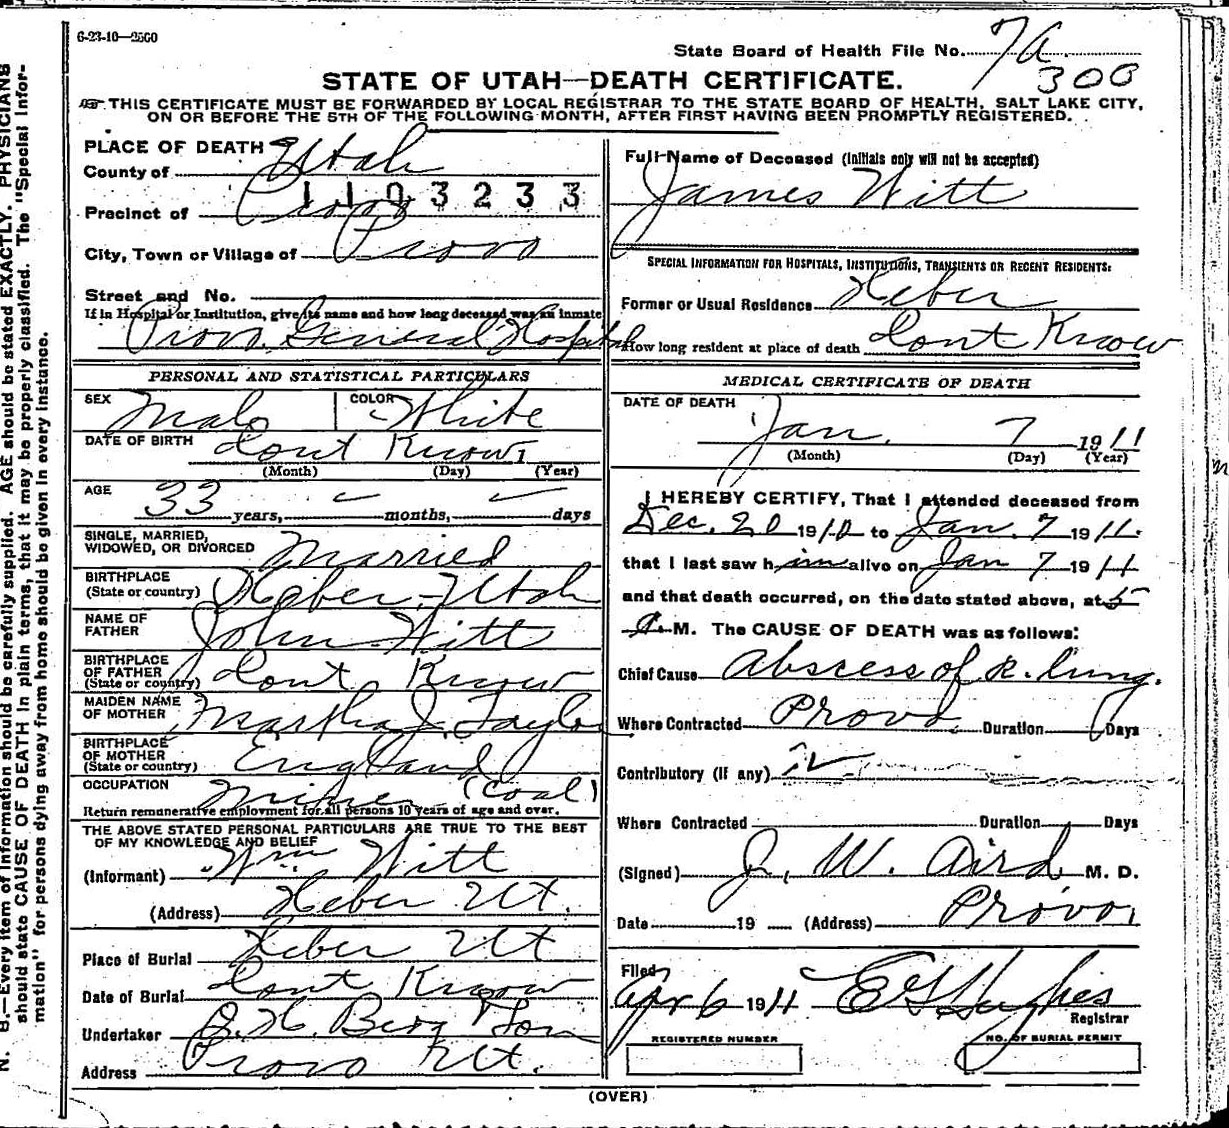 6-23-10—2560
State Board of Health File No. 7a
300
STATE OF UTAH—DEATH CERTIFICATE.
THIS CERTIFICATE MUST BE FORWARDED BY LOCAL REGISTRAR TO THE STATE BOARD OF HEALTH, SALT LAKE CITY,
ON OR BEFORE THE 5TH OF THE FOLLOWING MONTH, AFTER FIRST HAVING BEEN PROMPTLY REGISTERED.
PLACE OF DEATH
County of Utah
1103233
Precinct of Provo
City, Town or Village of Provo
Street and No.
If in Hospital or Institution, give its name and how long deceased was an inmate
Provo General Hospital
Full Name of Deceased (Initials only will not be accepted)
James Witt
SPECIAL INFORMATION FOR HOSPITALS, INSTITUTIONS, TRANSIENTS OR RECENT RESIDENTS:
Former or Usual Residence Heber
How long resident at place of death Dont Know
PERSONAL AND STATISTICAL PARTICULARS
SEX Male COLOR White
DATE OF BIRTH Dont Know
(Month) (Day) (Year)
AGE 33 years, months, days
SINGLE, MARRIED,
WIDOWED, OR DIVORCED Married
BIRTHPLACE
(State or country) Heber-Utah
NAME OF
FATHER John Witt
BIRTHPLACE
OF FATHER
(State or country) Dont Know
MAIDEN NAME
OF MOTHER Martha J. Taylor
BIRTHPLACE
OF MOTHER
(State or country) England
OCCUPATION Miner (Coal)
Return remunerative employment for all persons 10 years of age and over.
THE ABOVE STATED PERSONAL PARTICULARS ARE TRUE TO THE BEST
OF MY KNOWLEDGE AND BELIEF
(Informant) Wm Witt
(Address) Heber Ut.
Place of Burial Heber Ut
Date of Burial Dont Know
Undertaker Berg Son
Address Provo Ut.
MEDICAL CERTIFICATE OF DEATH
DATE OF DEATH
Jan. 7 1911
(Month) (Day) (Year)
I HEREBY CERTIFY, That I attended deceased from
Dec. 20 1910 to Jan. 7 1911.
that I last saw him alive on Jan 7 1911
and that death occurred, on the date stated above, at 5
a. M. The CAUSE OF DEATH was as follows:
Chief Cause Abscess of R. lung.
Where Contracted Provo Duration Days
Contributory (if any)
Where Contracted Duration Days
(Signed) J. W. Aird, M. D.
Date 19 (Address) Provo,
Filed
Apr 6 1911 E G Hughes
Registrar
REGISTERED NUMBER
NO. OF BURIAL PERMIT
(OVER)
N. B.—Every item of information should be carefully supplied. AGE should be stated EXACTLY. PHYSICIANS
should state CAUSE OF DEATH in plain terms, that it may be properly classified. The "Special Infor-
mation" for persons dying away from home should be given in every instance.